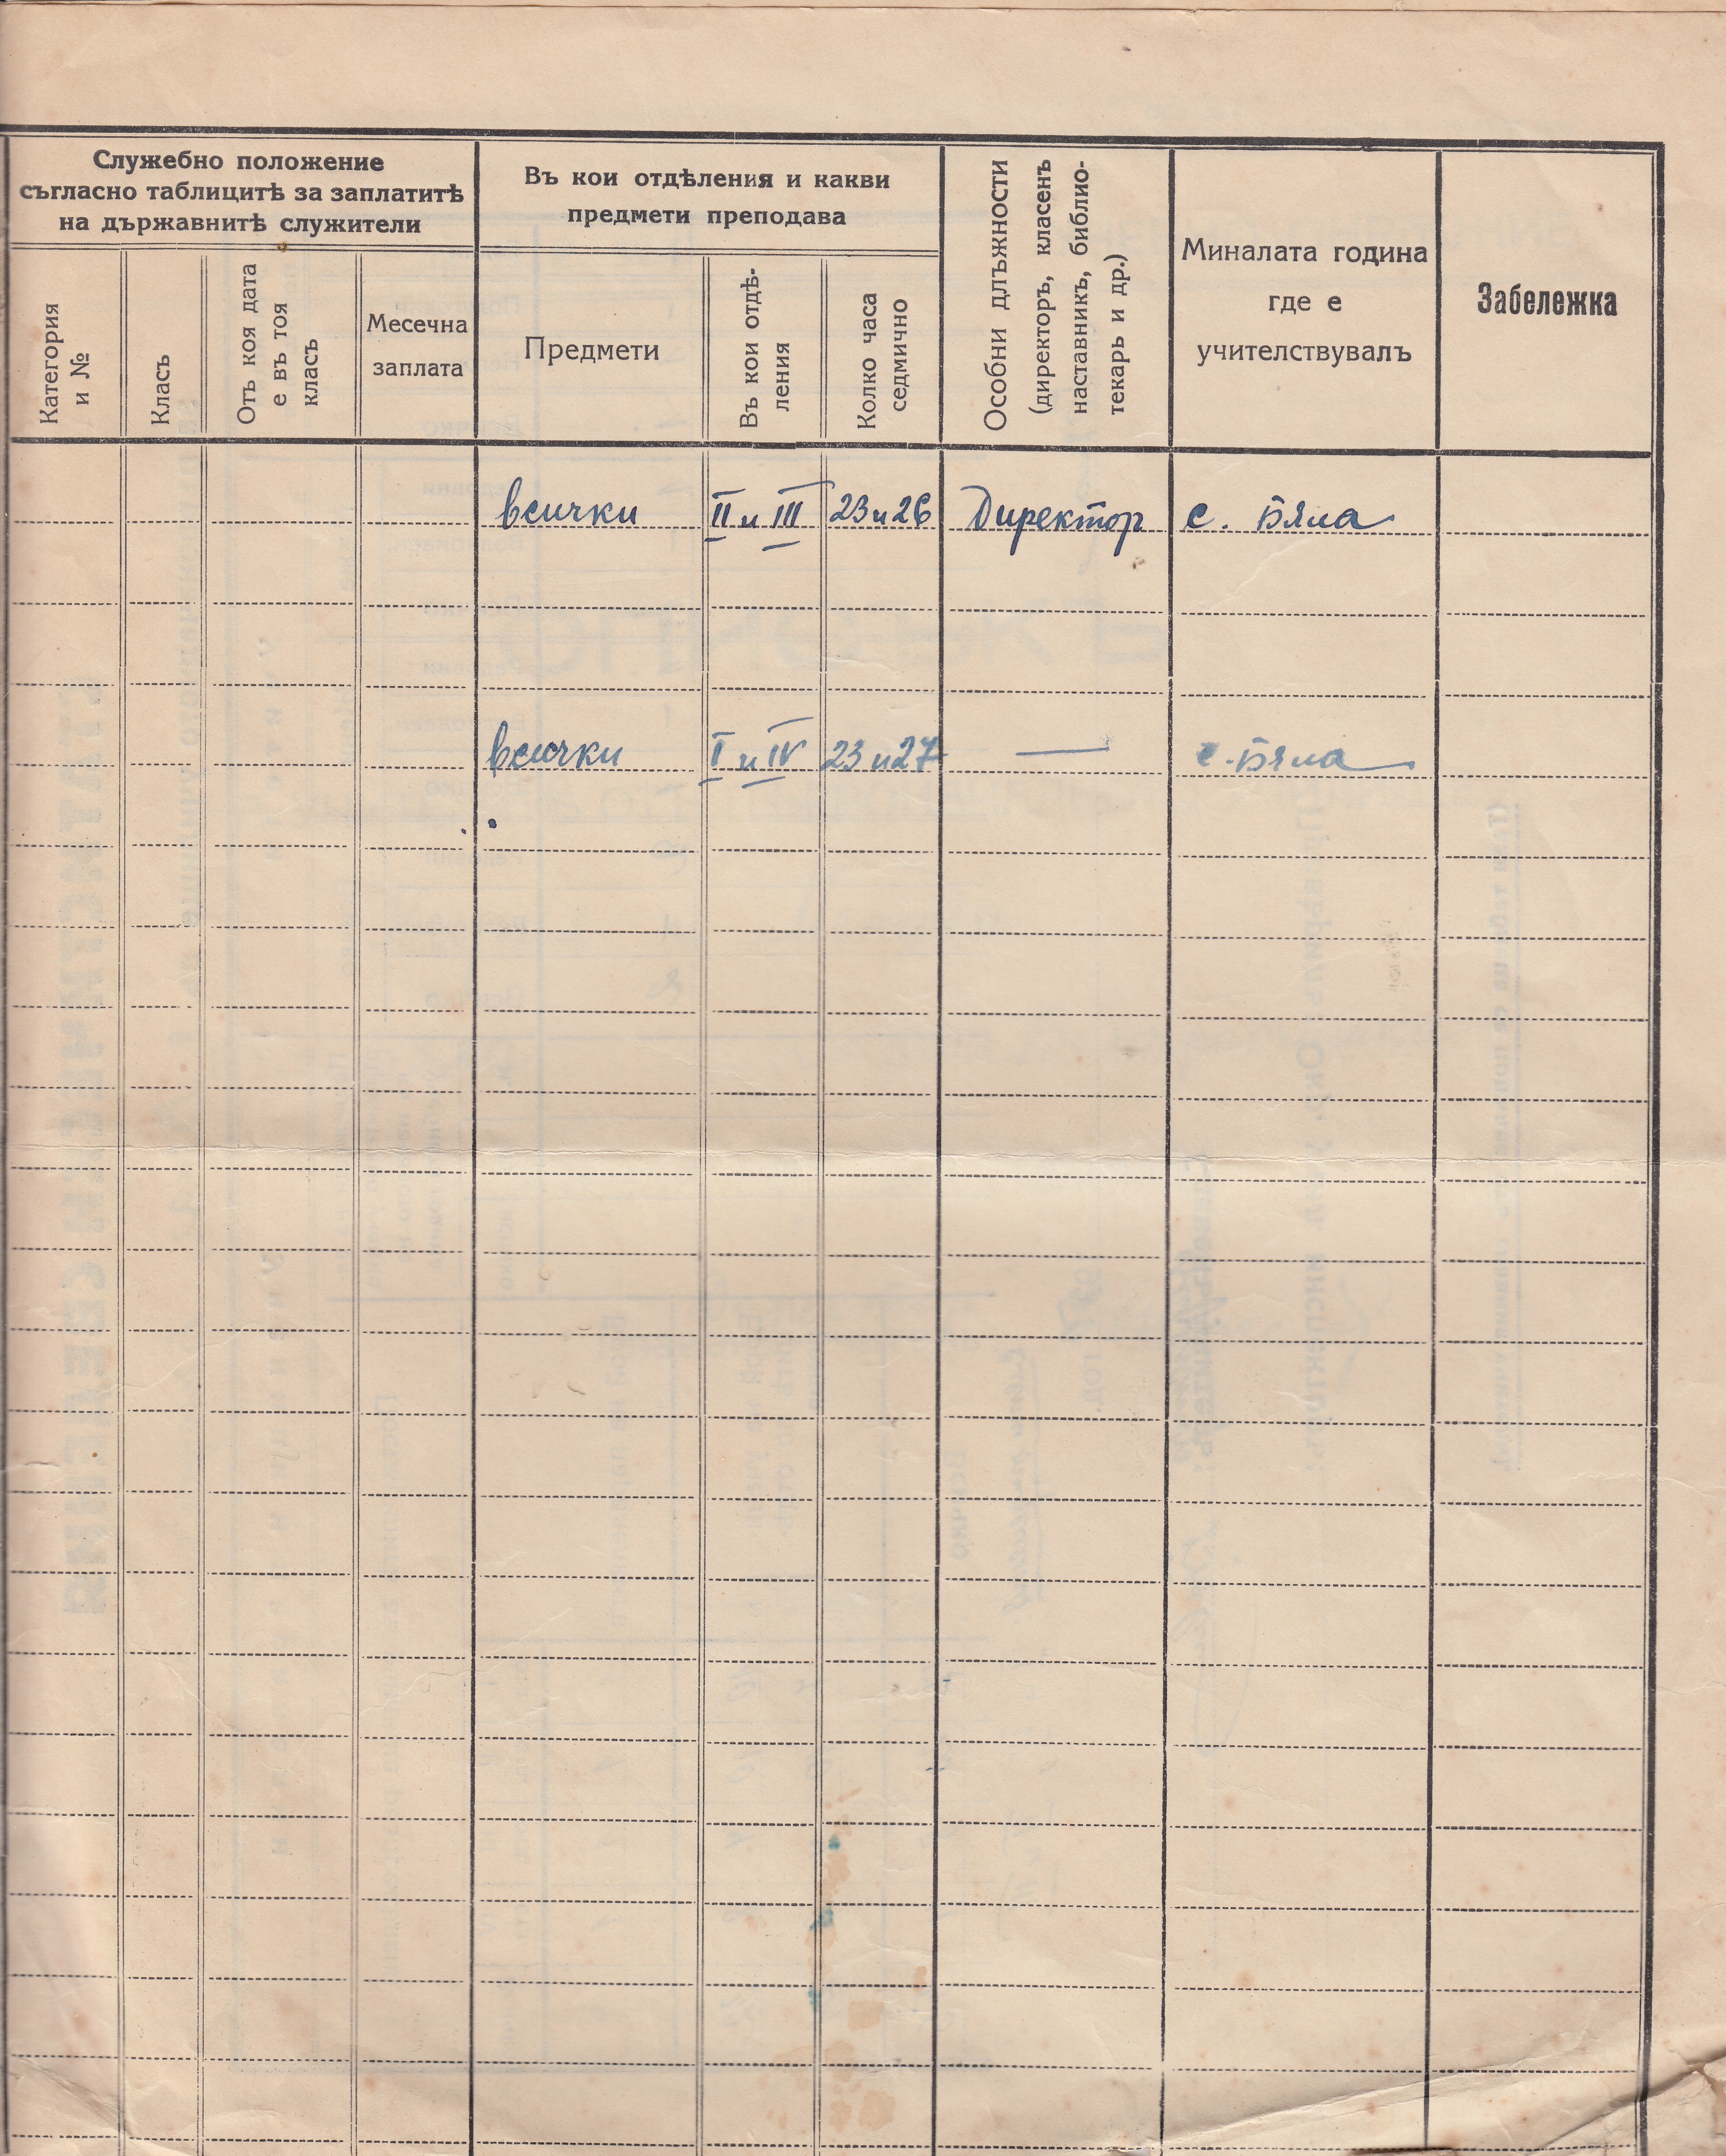 Служебно положение
съгласно таблицитѣ за заплатитѣ
на държавнитѣ служители
Въ кои отдѣления и какви
предмети преподава
Категория
и №
Класъ
Отъ коя дата
е въ тоя
класъ
Месечна
заплата
Предмети
Въ кои отдѣ-
ления
Колко часа
седмично
Особни длъжности
(директоръ, класенъ
наставникъ, библио-
текарь и др.)
Миналата година
где е
учителствувалъ
Забележка
всички II и III 23 и 26 Директор с. Бяла
всички I и IV 23 и 27 — с. Бяла